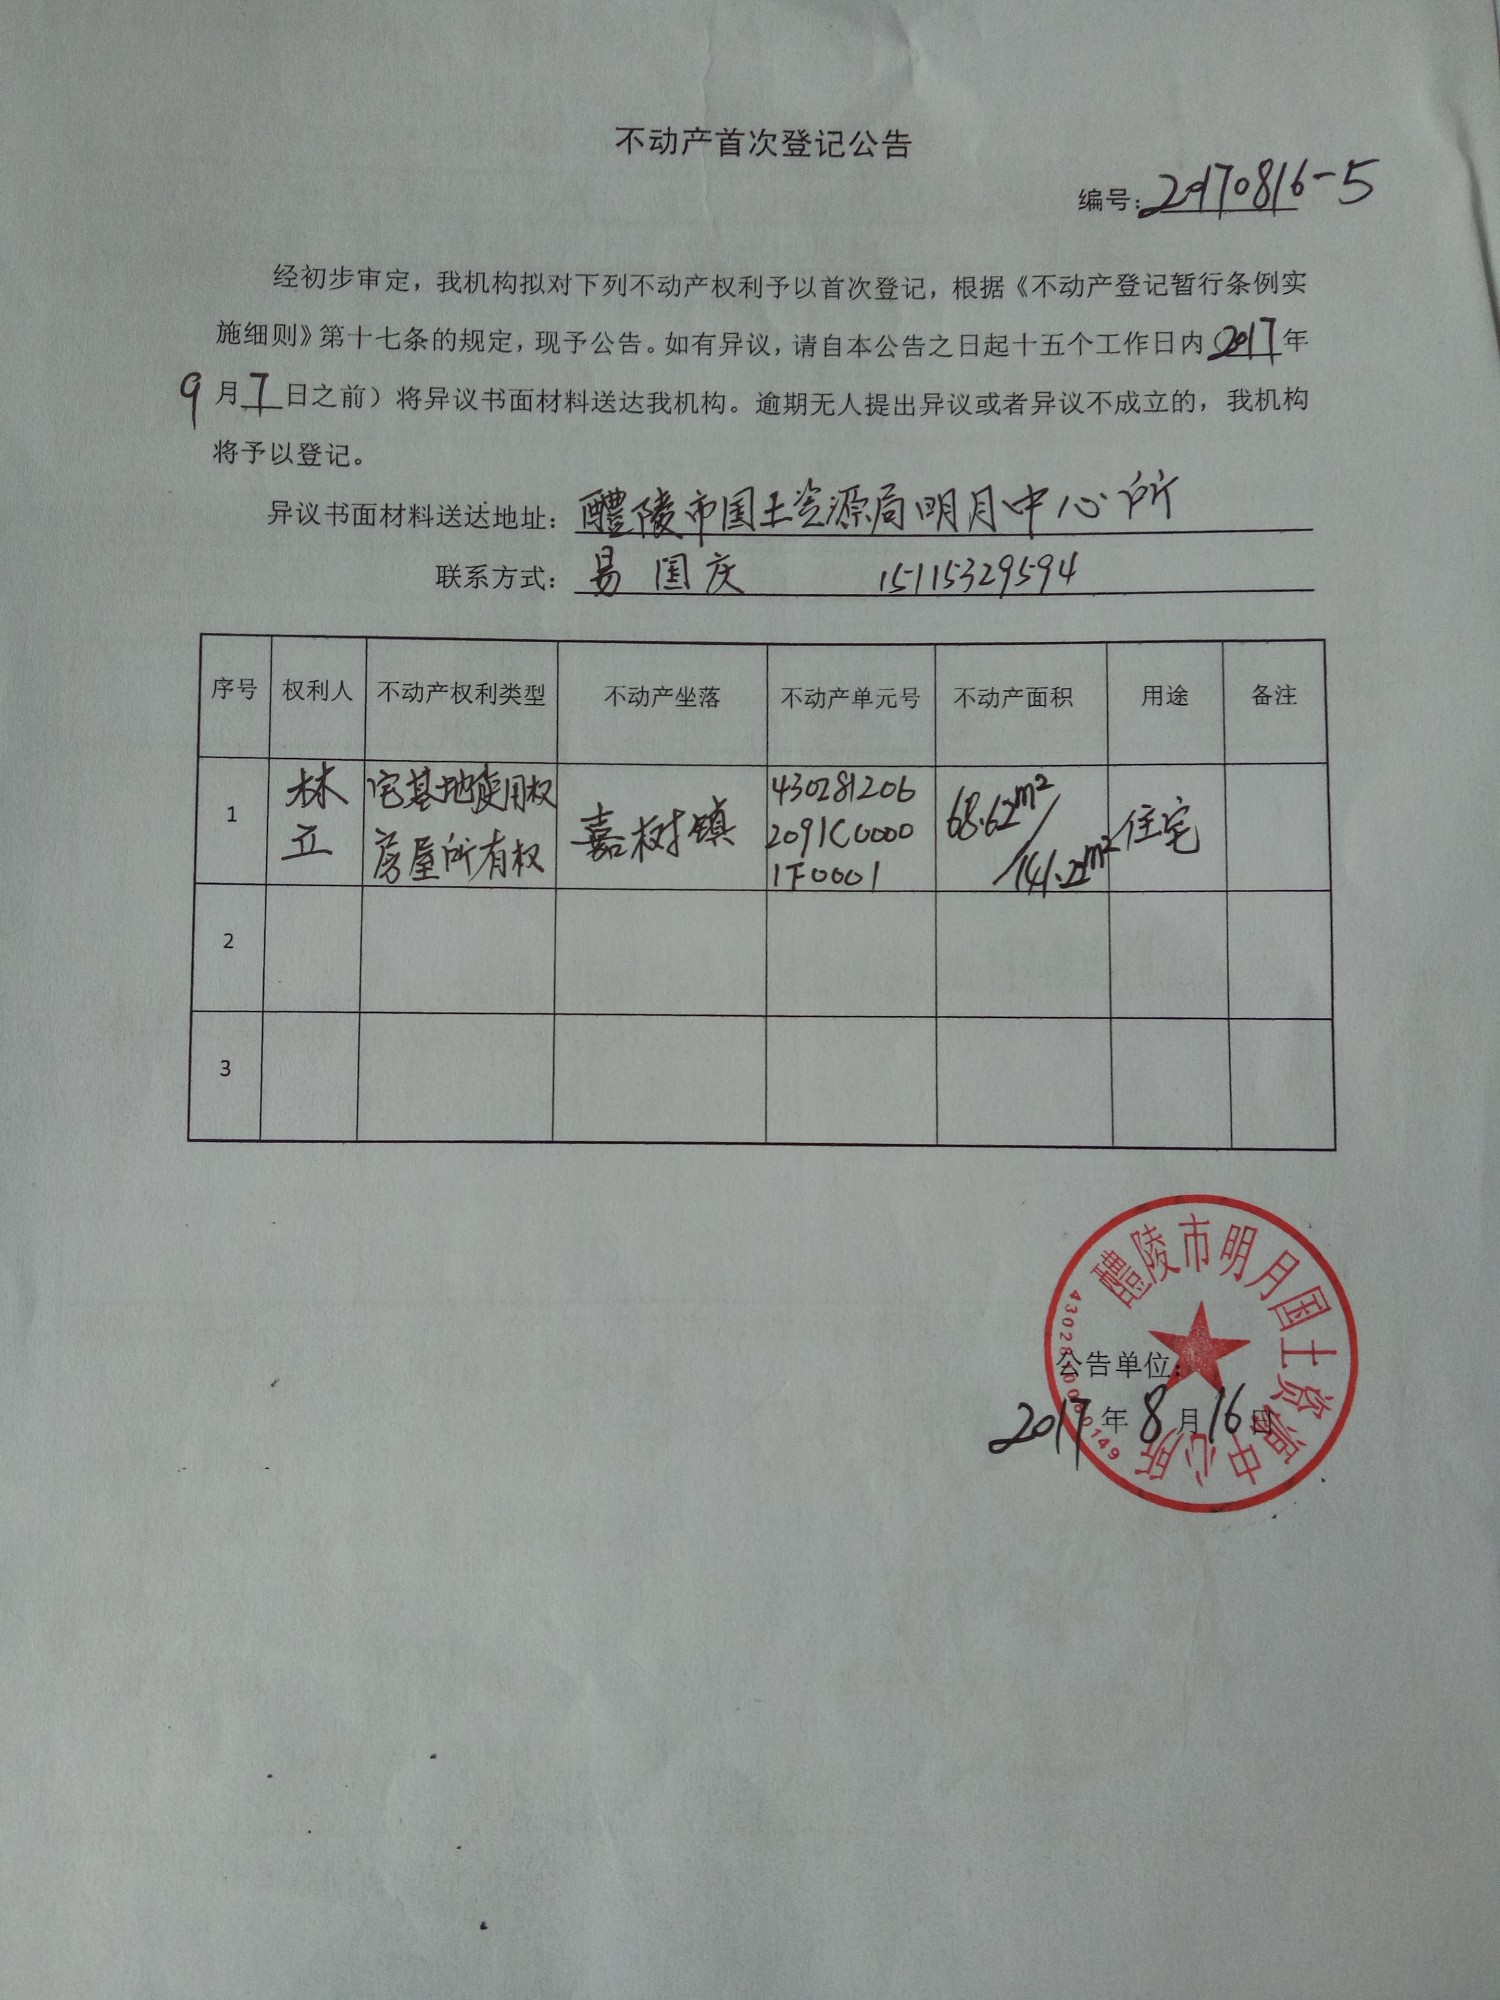 不动产首次登记公告
编号：20170816-5
经初步审定，我机构拟对下列不动产权利予以首次登记，根据《不动产登记暂行条例实
施细则》第十七条的规定，现予公告。如有异议，请自本公告之日起十五个工作日内（2017年
9月7日之前）将异议书面材料送达我机构。逾期无人提出异议或者异议不成立的，我机构
将予以登记。
异议书面材料送达地址：醴陵市国土资源局明月中心所
联系方式：易国庆 15115329594
序号 权利人 不动产权利类型 不动产坐落 不动产单元号 不动产面积 用途 备注
1 林立 宅基地使用权 房屋所有权 嘉树镇 430281206 2091C0000 1F0001 68.62m²/141.22m² 住宅
2
3
醴陵市明月国土资源中心所
公告单位：
2017年8月16日